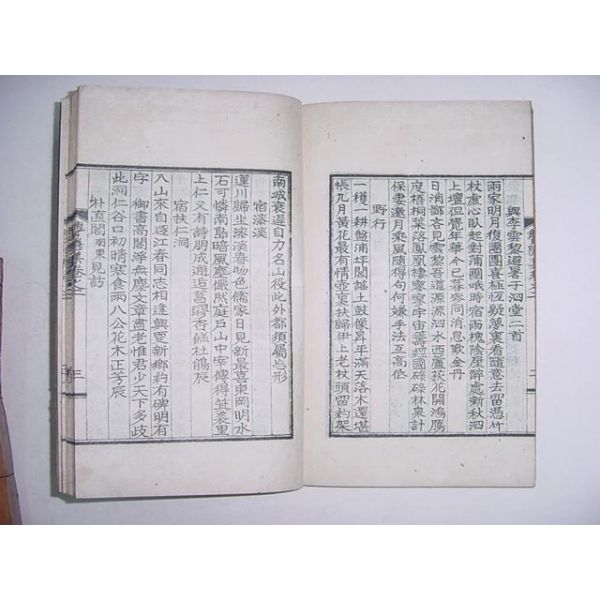 與李雲黎避暑于泗堂二首
兩家明月復團圓喜極疑夢裏看隨意去留憑竹
杖虛心臥起對蒲團哦時宿雨槐陰屋辭處新秋泗
上壇但覺年華今已暮參同消息歇金丹
日消鄙吝見雲黎吾道源源泗水西蘆荻花開鴻鴈
度梧桐葉落鳳凰棲寥寥宇宙籌國林泉計
保妻邀月乘風隨得句何嫌手法互高低
野行
一穫一耕盤浦坪間土鼓像昇平滿天落木還堪
帳九月黃花最有情壺裏扶歸伊上老杖頭留約架
南城衰遲自力名山役此外都須屬忘形
宿漆溪
蓮川歸坐漆溪春物色儒家日見新最喜東岡明水
石可憐南島暗風塵儼然庭戶山中安得箕裘重
上仁又有詩朋成邂逅觴杏酪杜鵑辰
宿扶仁洞
八山來自逐江春同志相逢興更新鄉約有碑明有
字御書高閣淨無塵文章盡老惟君少天下多歧
此洞仁谷口初晴寒食雨八公花木正芳辰
朴直閣雨東見訪
三